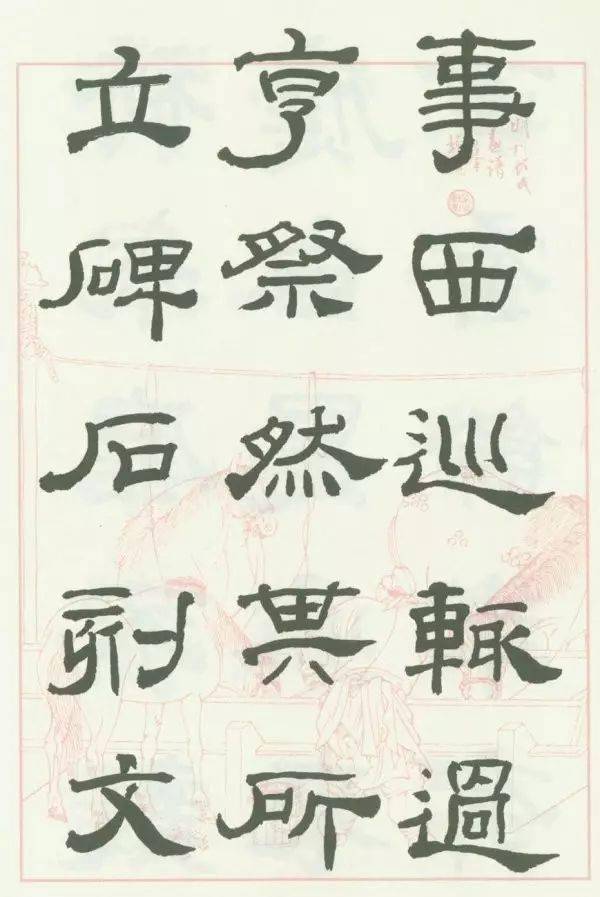 事西巡輒過
亨祭然其所
立碑石刻文